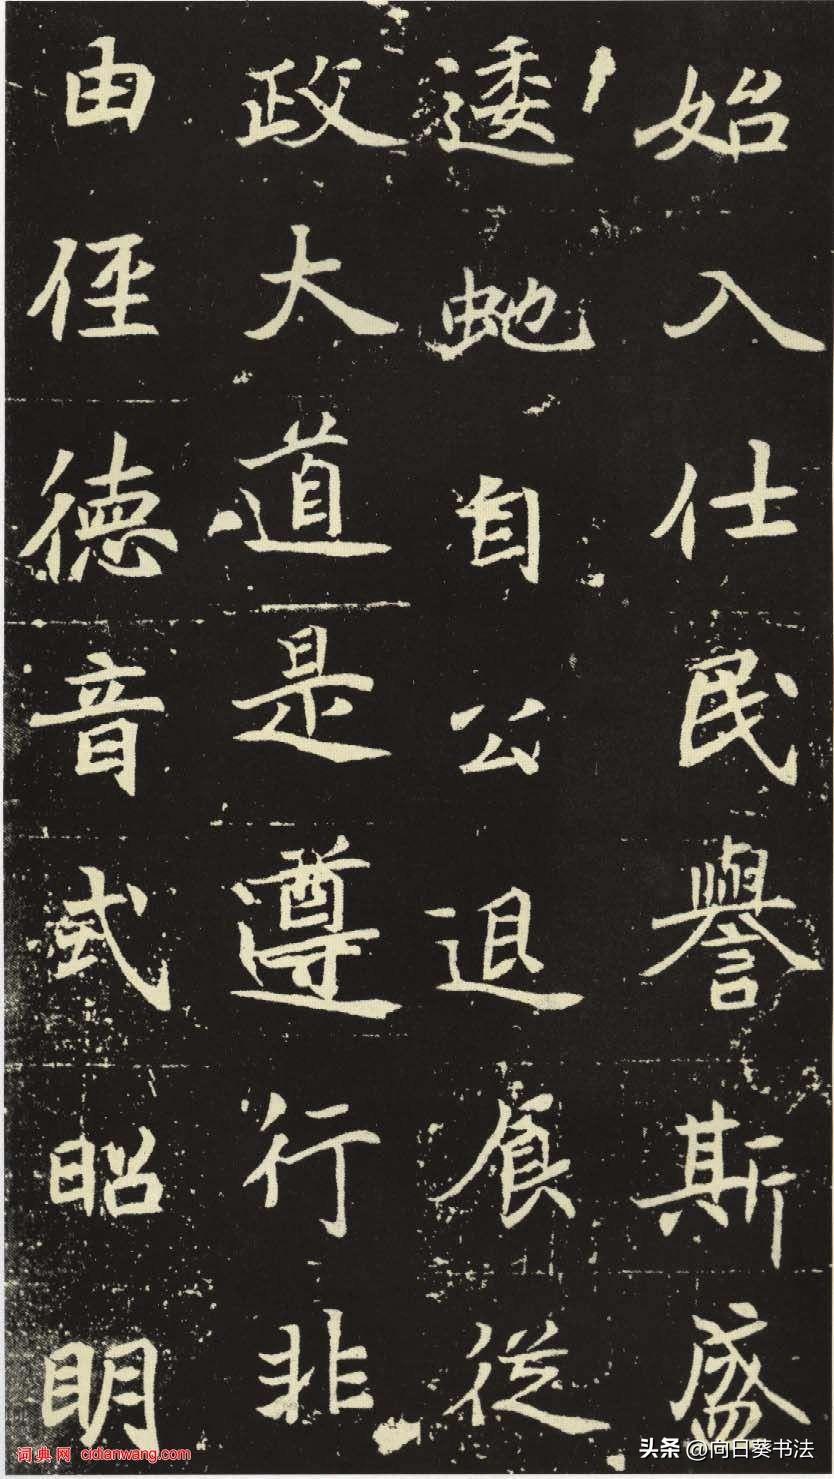 始入仕民譽斯盛
逶虵自公退食從
政大道是遵行非
由徑德音式昭明
词典网 cidianwang.com
头条 @向日葵书法